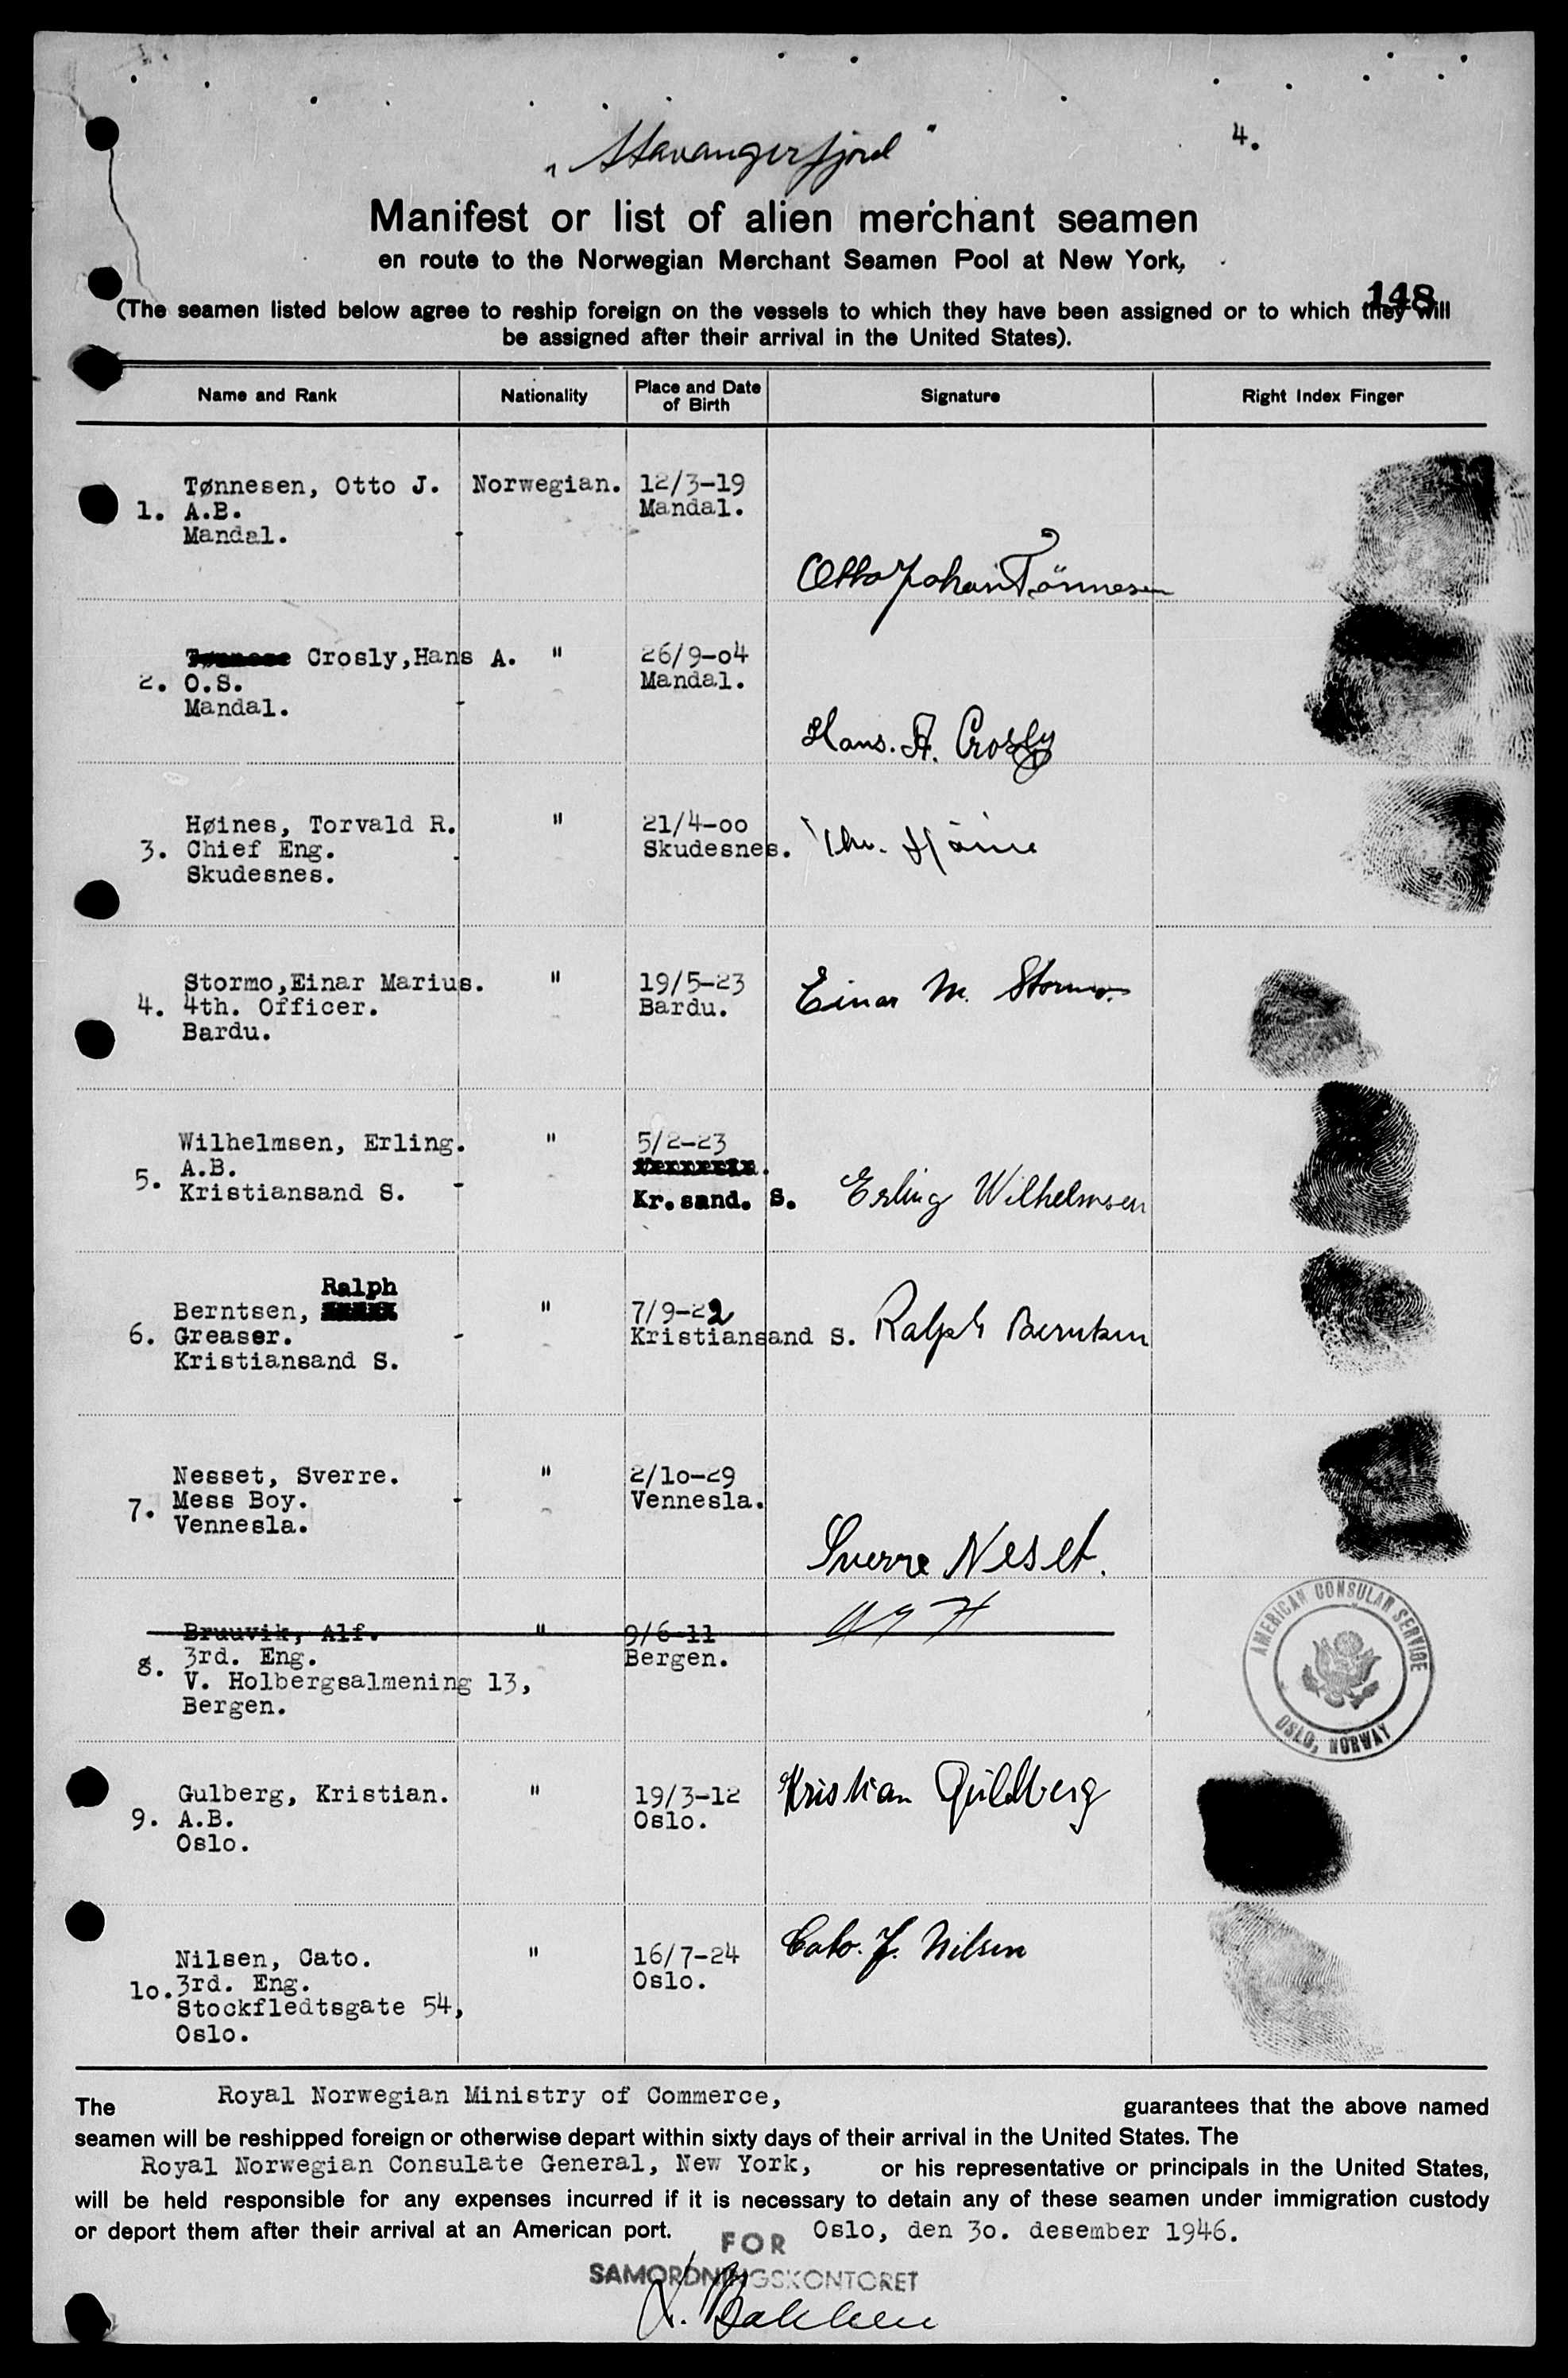 „ Stavangerfjord "
4.
Manifest or list of alien merchant seamen
en route to the Norwegian Merchant Seamen Pool at New York,
148
(The seamen listed below agree to reship foreign on the vessels to which they have been assigned or to which they will
be assigned after their arrival in the United States).
Name and Rank Nationality Place and Date of Birth Signature Right Index Finger
Tønnesen, Otto J. Norwegian. 12/3-19
1. A.B. Mandal.
Mandal.
Otto Johan Tönnesen
Crosly,Hans A. " 26/9-o4
2. O.S. Mandal.
Mandal.
Hans. A. Crosly
Høines, Torvald R. " 21/4-oo
3. Chief Eng. Skudesnes.
Skudesnes.
Stormo,Einar Marius. " 19/5-23
4. 4th. Officer. Bardu. Einar M. Stormo.
Bardu.
Wilhelmsen, Erling. " 5/2-23
5. A.B.
Kristiansand S. Kr.sand. S. Erling Wilhelmsen
Ralph
Berntsen, " 7/9-22
6. Greaser. Kristiansand S. Ralph Berntsen
Kristiansand S.
Nesset, Sverre. " 2/lo-29
7. Mess Boy. Vennesla.
Vennesla.
Sverre Neset.
Bruuvik, Alf. " 9/6-11
8. 3rd. Eng. Bergen.
V. Holbergsalmening 13,
Bergen.
AMERICAN CONSULAR SERVICE
OSLO, NORWAY
Gulberg, Kristian. " 19/3-12 Kristian Guldberg
9. A.B. Oslo.
Oslo.
Nilsen, Cato. " 16/7-24 Cato. J. Nilsen
lo. 3rd. Eng. Oslo.
Stockfledtsgate 54,
Oslo.
The Royal Norwegian Ministry of Commerce, guarantees that the above named
seamen will be reshipped foreign or otherwise depart within sixty days of their arrival in the United States. The
Royal Norwegian Consulate General, New York, or his representative or principals in the United States,
will be held responsible for any expenses incurred if it is necessary to detain any of these seamen under immigration custody
or deport them after their arrival at an American port. Oslo, den 3o. desember 1946.
FOR
SAMORDNINGSKONTORET